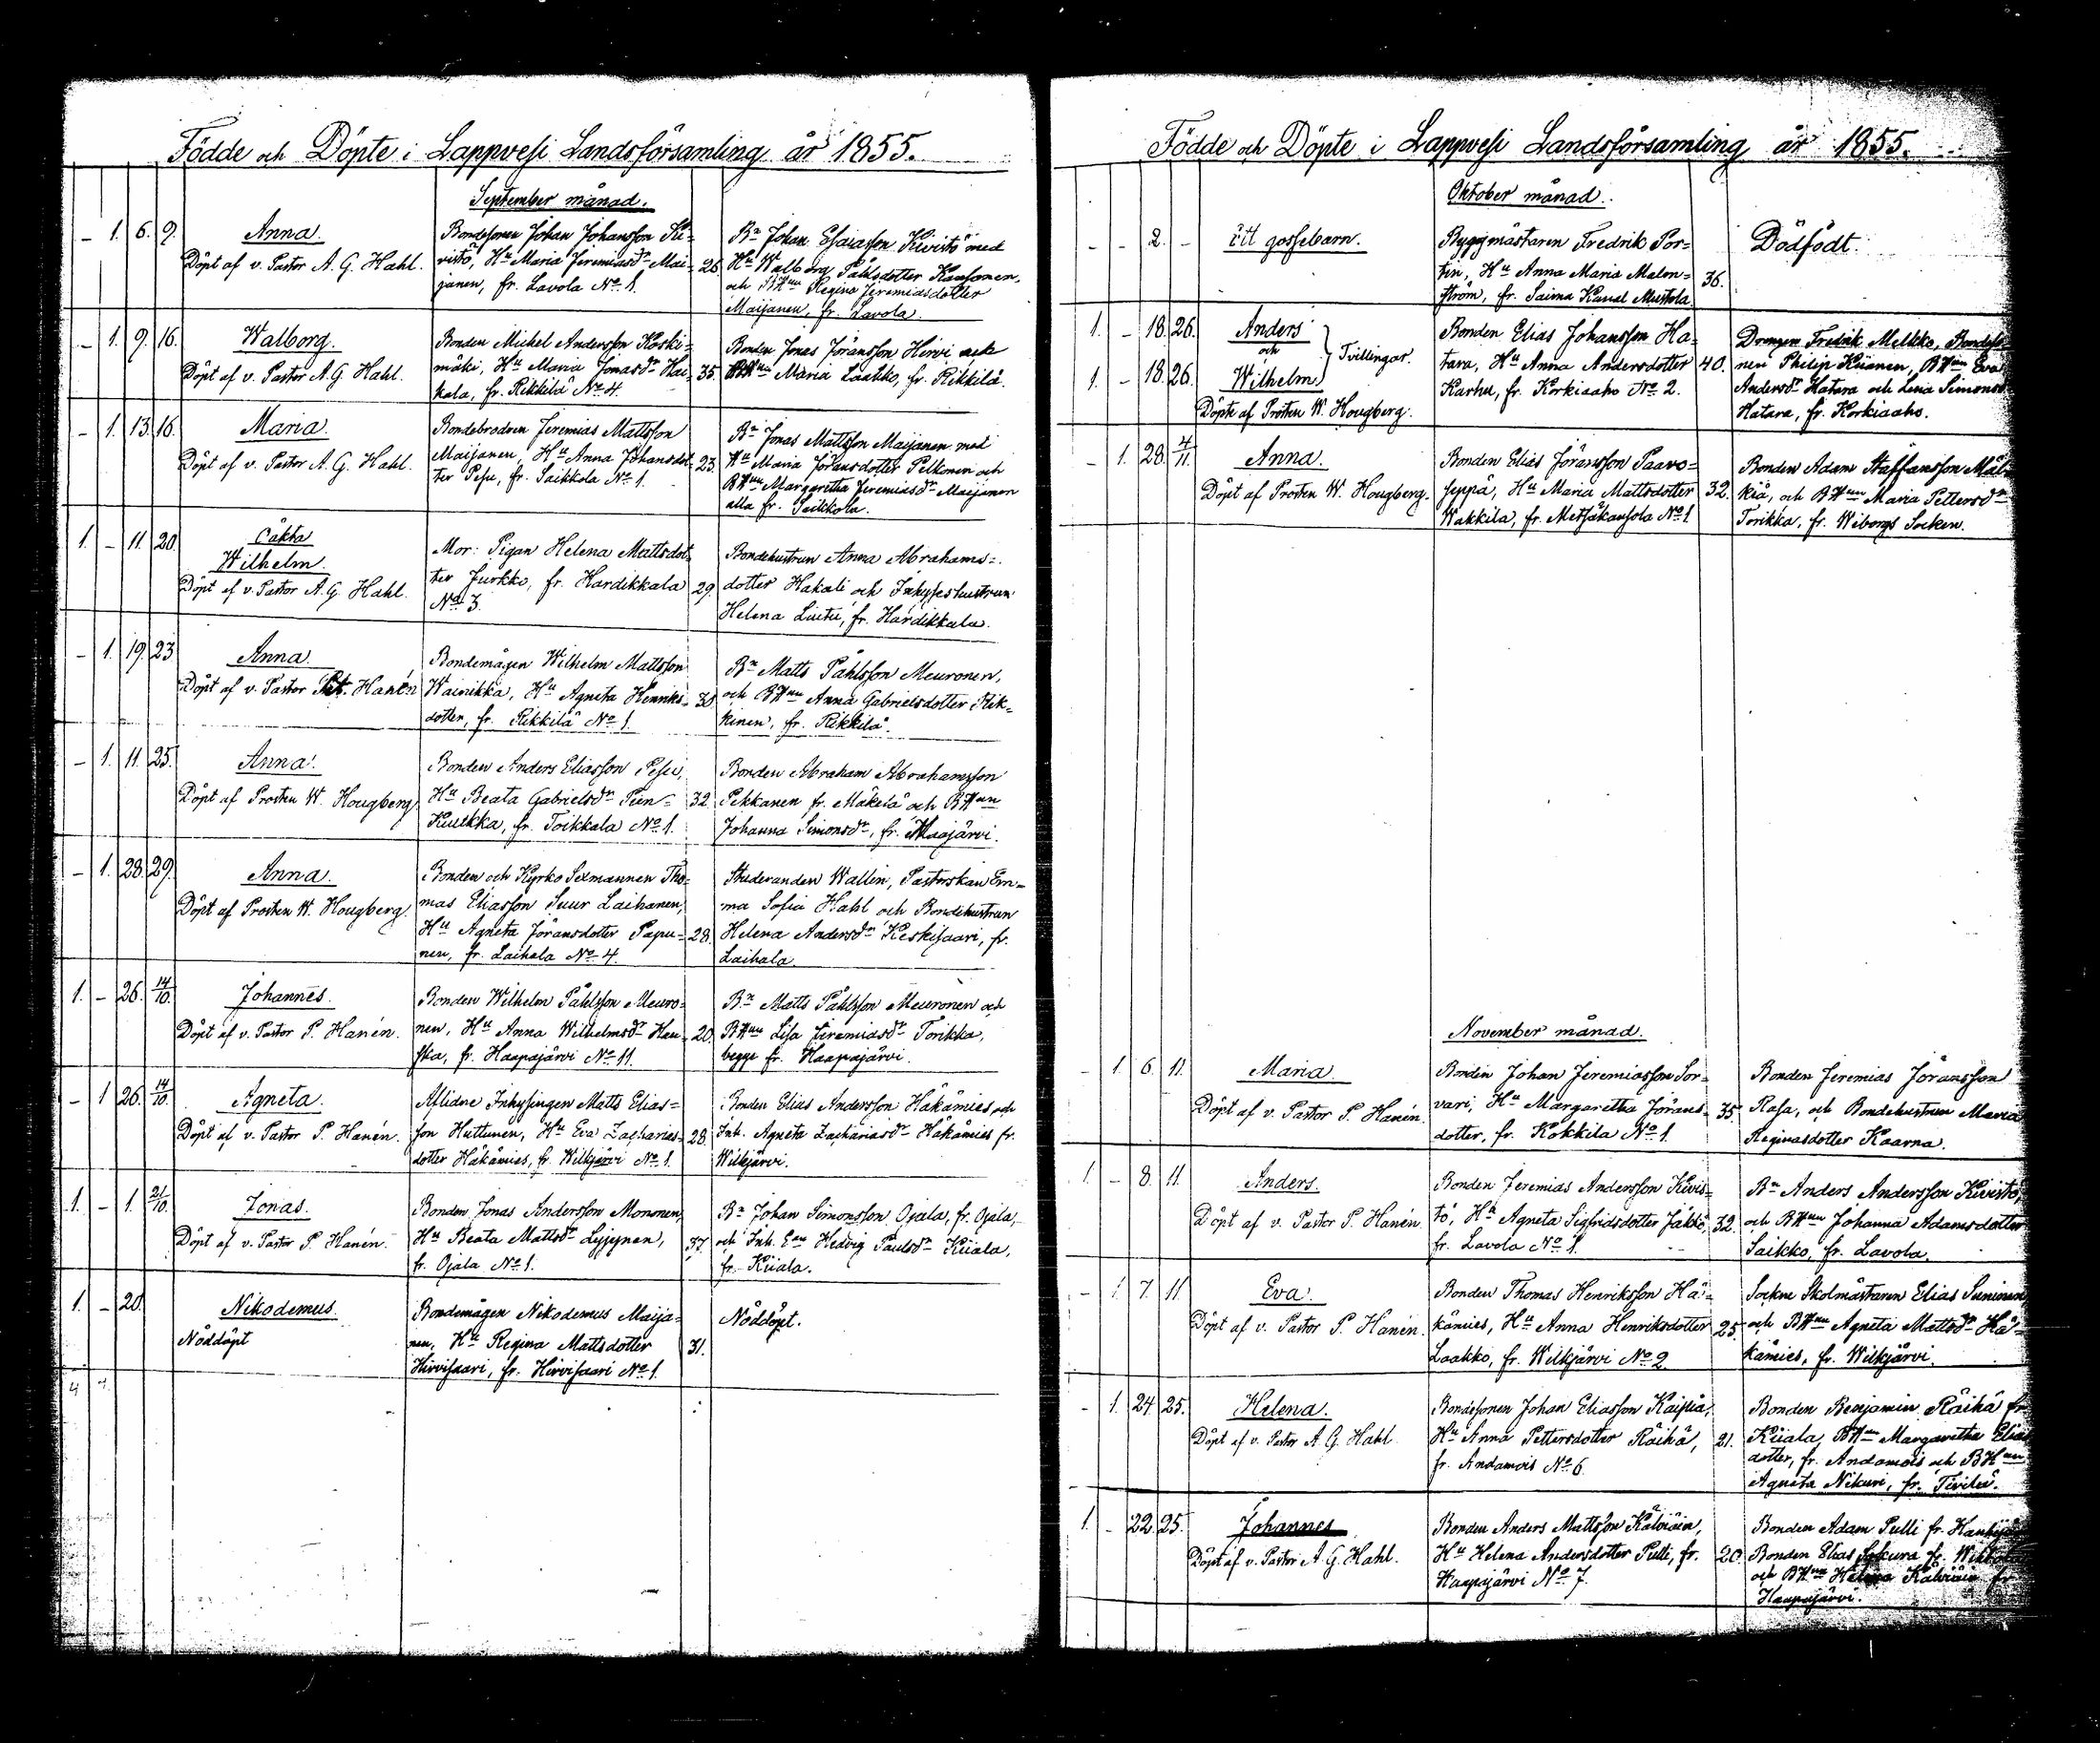 Födde och Döpte i Lappvesi Landsförsamling år 1855.
September månad.
– 1. 6. 9. Anna.
Döpt af v. Pastor A. G. Hahl.
Bondesonen Johan Johansson Ki=
vistö, Hu Maria Jeremiasdr Mai=
janen, fr. Lavola No 1.
26.
Bn Johan Esaiasson Kivistö med
Hu Walborg Påhlsdotter Kausonen,
och BHun Regina Jeremiasdotter
Maijanen, fr. Lavola.
– 1. 9. 16. Walborg.
Döpt af v. Pastor A. G. Hahl.
Bonden Michel Andersson Koski=
mäki, Hu Maria Jonasdr Hai=
kala, fr. Rikkilä No 4.
35.
Bonden Jonas Jöransson Hirvi och
BHun Maria Laakko, fr. Rikkilä.
– 1. 13. 16. Maria.
Döpt af v. Pastor A. G. Hahl.
Bondebrodren Jeremias Mattsson
Maijanen, Hu Anna Johansdot=
ter Pesu, fr. Saikkola No 1.
23.
Bn Jonas Mattsson Maijanen med
Hu Maria Jöransdotter Pelkonen och
BHun Margaretha Jeremiasdr Maijanen
alla fr. Saikkola.
1. – 11. 20. Oäkta
Wilhelm.
Döpt af v. Pastor A. G. Hahl.
Mor: Pigan Helena Mattsdot=
ter Jurkko, fr. Hardikkala
No 3.
29.
Bondehustrun Anna Abrahams=
dotter Hakali och Inhyseshustrun
Helena Liutu, fr. Hardikkala.
– 1. 19. 23. Anna.
Döpt af v. Pastor Pet. Hanén
Bondemågen Wilhelm Mattsson
Wainikka, Hu Agneta Henriks=
dotter, fr. Rikkilä No 1.
30.
Bn Matts Påhlsson Meuronen,
och BHun Anna Gabrielsdotter Rik=
kinen, fr. Rikkilä.
– 1. 11. 25. Anna.
Döpt af Prosten W. Hougberg
Bonden Anders Eliasson Pesu,
Hu Beata Gabrielsdr Pien=
Kuukka, fr. Toikkala No 1.
32.
Bonden Abraham Abrahamsson
Pekkanen fr. Mäkelä och BHun
Johanna Simonsdr, fr. Haajärvi.
– 1. 28. 29. Anna.
Döpt af Prosten W. Hougberg.
Bonden och Kyrko Sexmannen Tho=
mas Eliasson Suur Laihanen,
Hu Agneta Jöransdotter Papu=
nen, fr. Laihala No 4.
28.
Studeranden Wallin, Pastorskan Em=
ma Sofia Hahl och Bondehustrun
Helena Andersdr Keskisaari, fr.
Laihala.
1. – 26. 14/10. Johannes.
Döpt af v. Pastor P. Hanén.
Bonden Wilhelm Påhlsson Meuro=
nen, Hu Anna Wilhelmsdr Han=
ska, fr. Haapajärvi No 11.
20.
Bn Matts Påhlsson Meuronen och
BHun Lisa Jeremiasdr Torikka,
begge fr. Haapajärvi.
– 1 26. 14/10. Agneta.
Döpt af v. Pastor P. Hanén.
Aflidne Inhysingen Matts Elias=
son Huttunen, Hu Eva Zacharias=
dotter Häkämies, fr. Wilkjärvi No 1.
28.
Bonden Elias Andersson Häkämies och
Inh. Agneta Zachariasdr Häkämies fr.
Wilkjärvi.
1. – 1. 21/10. Jonas.
Döpt af v. Pastor P. Hanén.
Bonden Jonas Andersson Mononen,
Hu Beata Mattsdr Lyjynen,
fr. Ojala No 1.
37.
Bn Johan Simonsson Ojala, fr. Ojala,
och Inh. Enn Hedvig Paulsdr Kiiala,
fr. Kiiala.
1. – 20. Nikodemus.
Nöddöpt
Bondemågen Nikodemus Maija=
nen, Hu Regina Mattsdotter
Hirvisaari, fr. Hirvisaari No 1.
31.
Nöddöpt.
4 7.
Födde och Döpte i Lappvesi Landsförsamling år 1855.
Oktober månad.
– – 2. – Ett gossebarn.
Byggmästaren Fredrik Por=
tin, Hu Anna Maria Malm=
ström, fr. Saima Kanal Mustola.
36.
Dödfödt.
1. – 18. 26. Anders
och
1. – 18. 26. Wilhelm
Tvillingar.
Döpte af Prosten W. Hougberg.
Bonden Elias Johansson Ha=
tara, Hu Anna Andersdotter
Karhu, fr. Korkiaaho No 2.
40.
Drengen Fredrik Melkko, Bondeso
nen Philip Kiianen, BHun Eva
Andersdr Hatara och Lena Simonsd
Hatara, fr. Korkiaaho.
– 1. 28. 4/11. Anna.
Döpt af Prosten W. Hougberg.
Bonden Elias Jöransson Paavo=
seppä, Hu Maria Mattsdotter
Wakkila, fr. Metsäkansola No 1
32.
Bonden Adam Staffansson Mäl=
kiä, och BHun Maria Pettersdr
Torikka, fr. Wiborgs Socken.
November månad.
– 1. 6. 11. Maria.
Döpt af v. Pastor P. Hanén.
Bonden Johan Jeremiasson Sor=
vari, Hu Margaretha Jörans=
dotter, fr. Kokkila No 1.
35.
Bonden Jeremias Jöransson
Rasa, och Bondehustrun Maria
Reginasdotter Kaarna.
1. – 8. 11. Anders.
Döpt af v. Pastor P. Hanén.
Bonden Jeremias Andersson Kivis=
tö, Hu Agneta Sigfridsdotter Jäkkö,
fr. Lavola No 1.
32.
Bn Anders Andersson Kivistö,
och BHun Johanna Adamsdotter
Saikko, fr. Lavola.
– 1. 7. 11. Eva.
Döpt af v. Pastor P. Hanén.
Bonden Thomas Henriksson Hä=
kämies, Hu Anna Henriksdotter
Laakko, fr. Wilkjärvi No 2
25.
Socken Skolmästaren Elias Suninen
och BHun Agneta Mattsdr Hä=
kämies, fr. Wilkjärvi.
– 1. 24. 25. Helena.
Döpt af v. Pastor A. G. Hahl
Bondesonen Johan Eliasson Kaipia,
Hu Anna Pettersdotter Räihä,
fr. Andamois No 6.
21.
Bonden Benjamin Räihä fr
Kiiala, BHun Margaretha Elias
dotter, fr. Andamois och BHun
Agneta Nikuri, fr. Tiviliä.
1. – 22. 25. Johannes
Döpt af v. Pastor A. G. Hahl.
Bonden Anders Mattsson Kälviäin,
Hu Helena Andersdotter Pulli, fr.
Haapajärvi No 7.
20.
Bonden Adam Pulli fr.
Bonden Elias fr.
och BHun Helena Kälviäin fr
Haapajärvi.